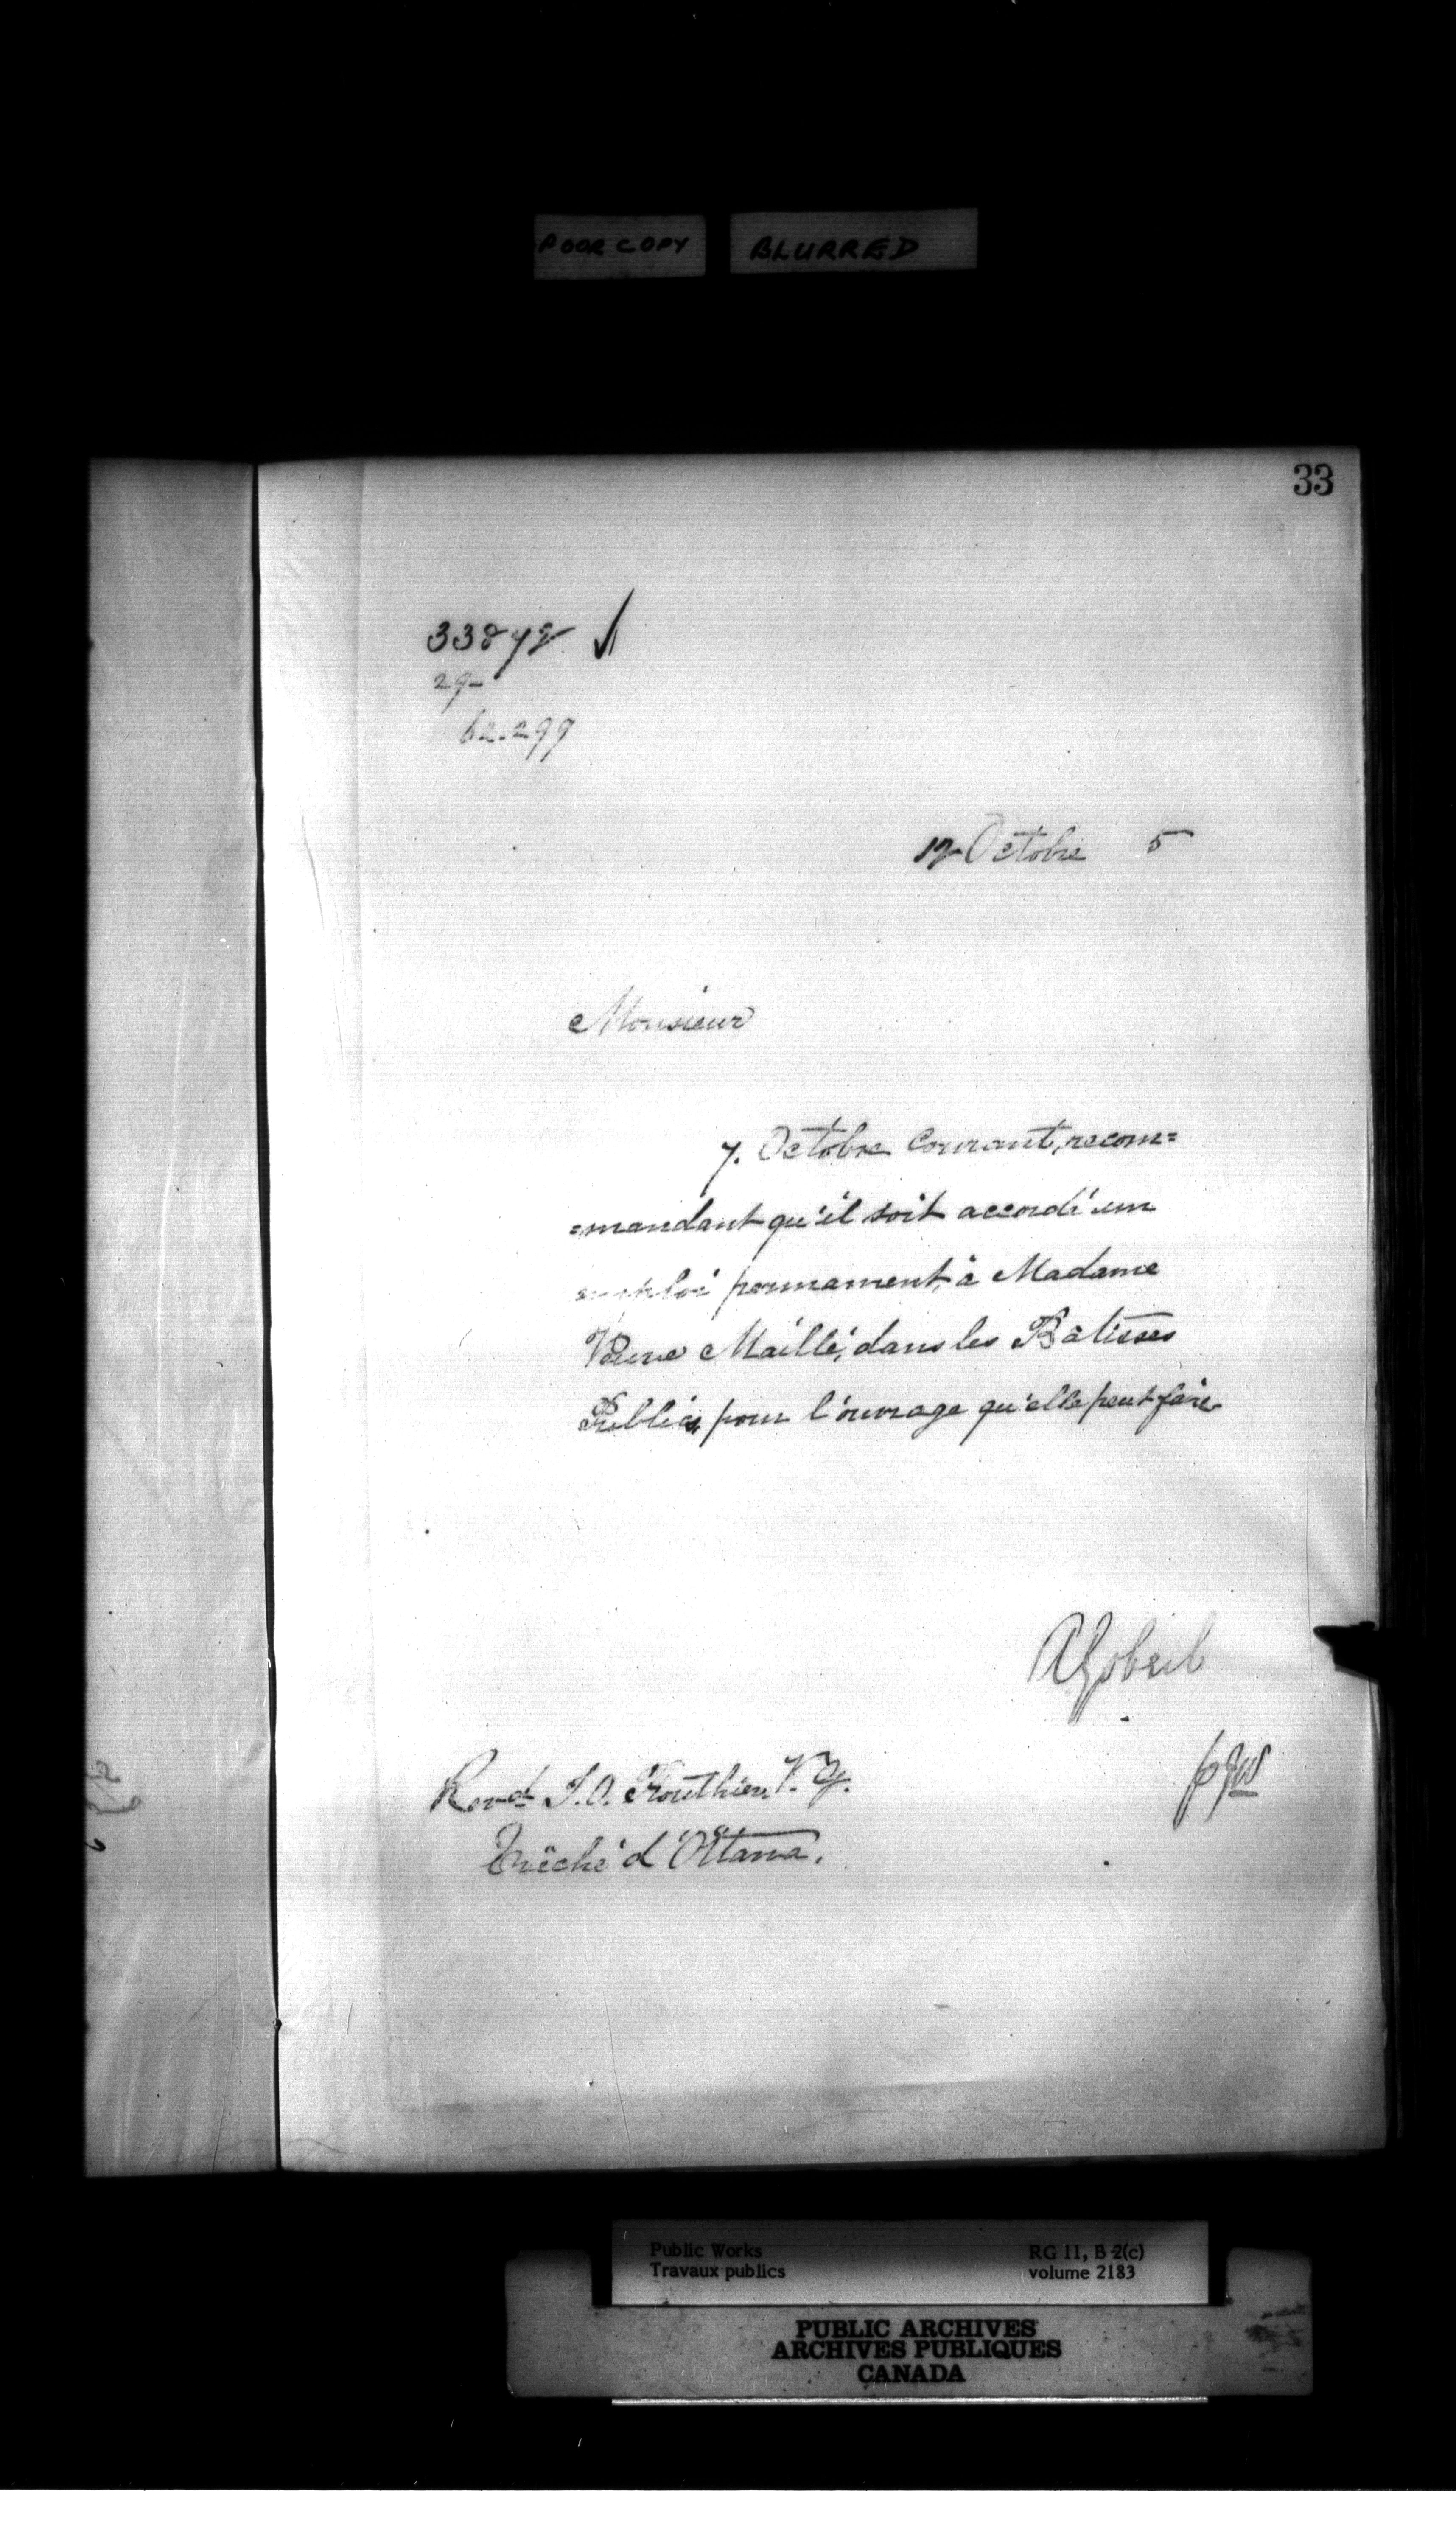 POOR COPY BLURRED
33
29-
62.299
12 Octobre 5
Monsieur
7. Octobre Courant, recom=
=mandant qu'il soit accordé un
emploi permament, à Madame
Veuve Maillé, dans les Bâtisses
Publics, pour l'ouvrage qu'elle peut faire
AGobeil
Revd. J.O. Routhier, V.G.
Evêché d'Ottawa.
Public Works
Travaux publics
RG 11, B 2(c)
volume 2183
PUBLIC ARCHIVES
ARCHIVES PUBLIQUES
CANADA